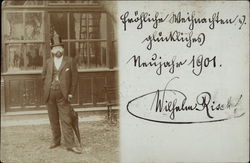 fröhliche Weihnachten &
glückliches
Neujahr 1901.
Wilhelm